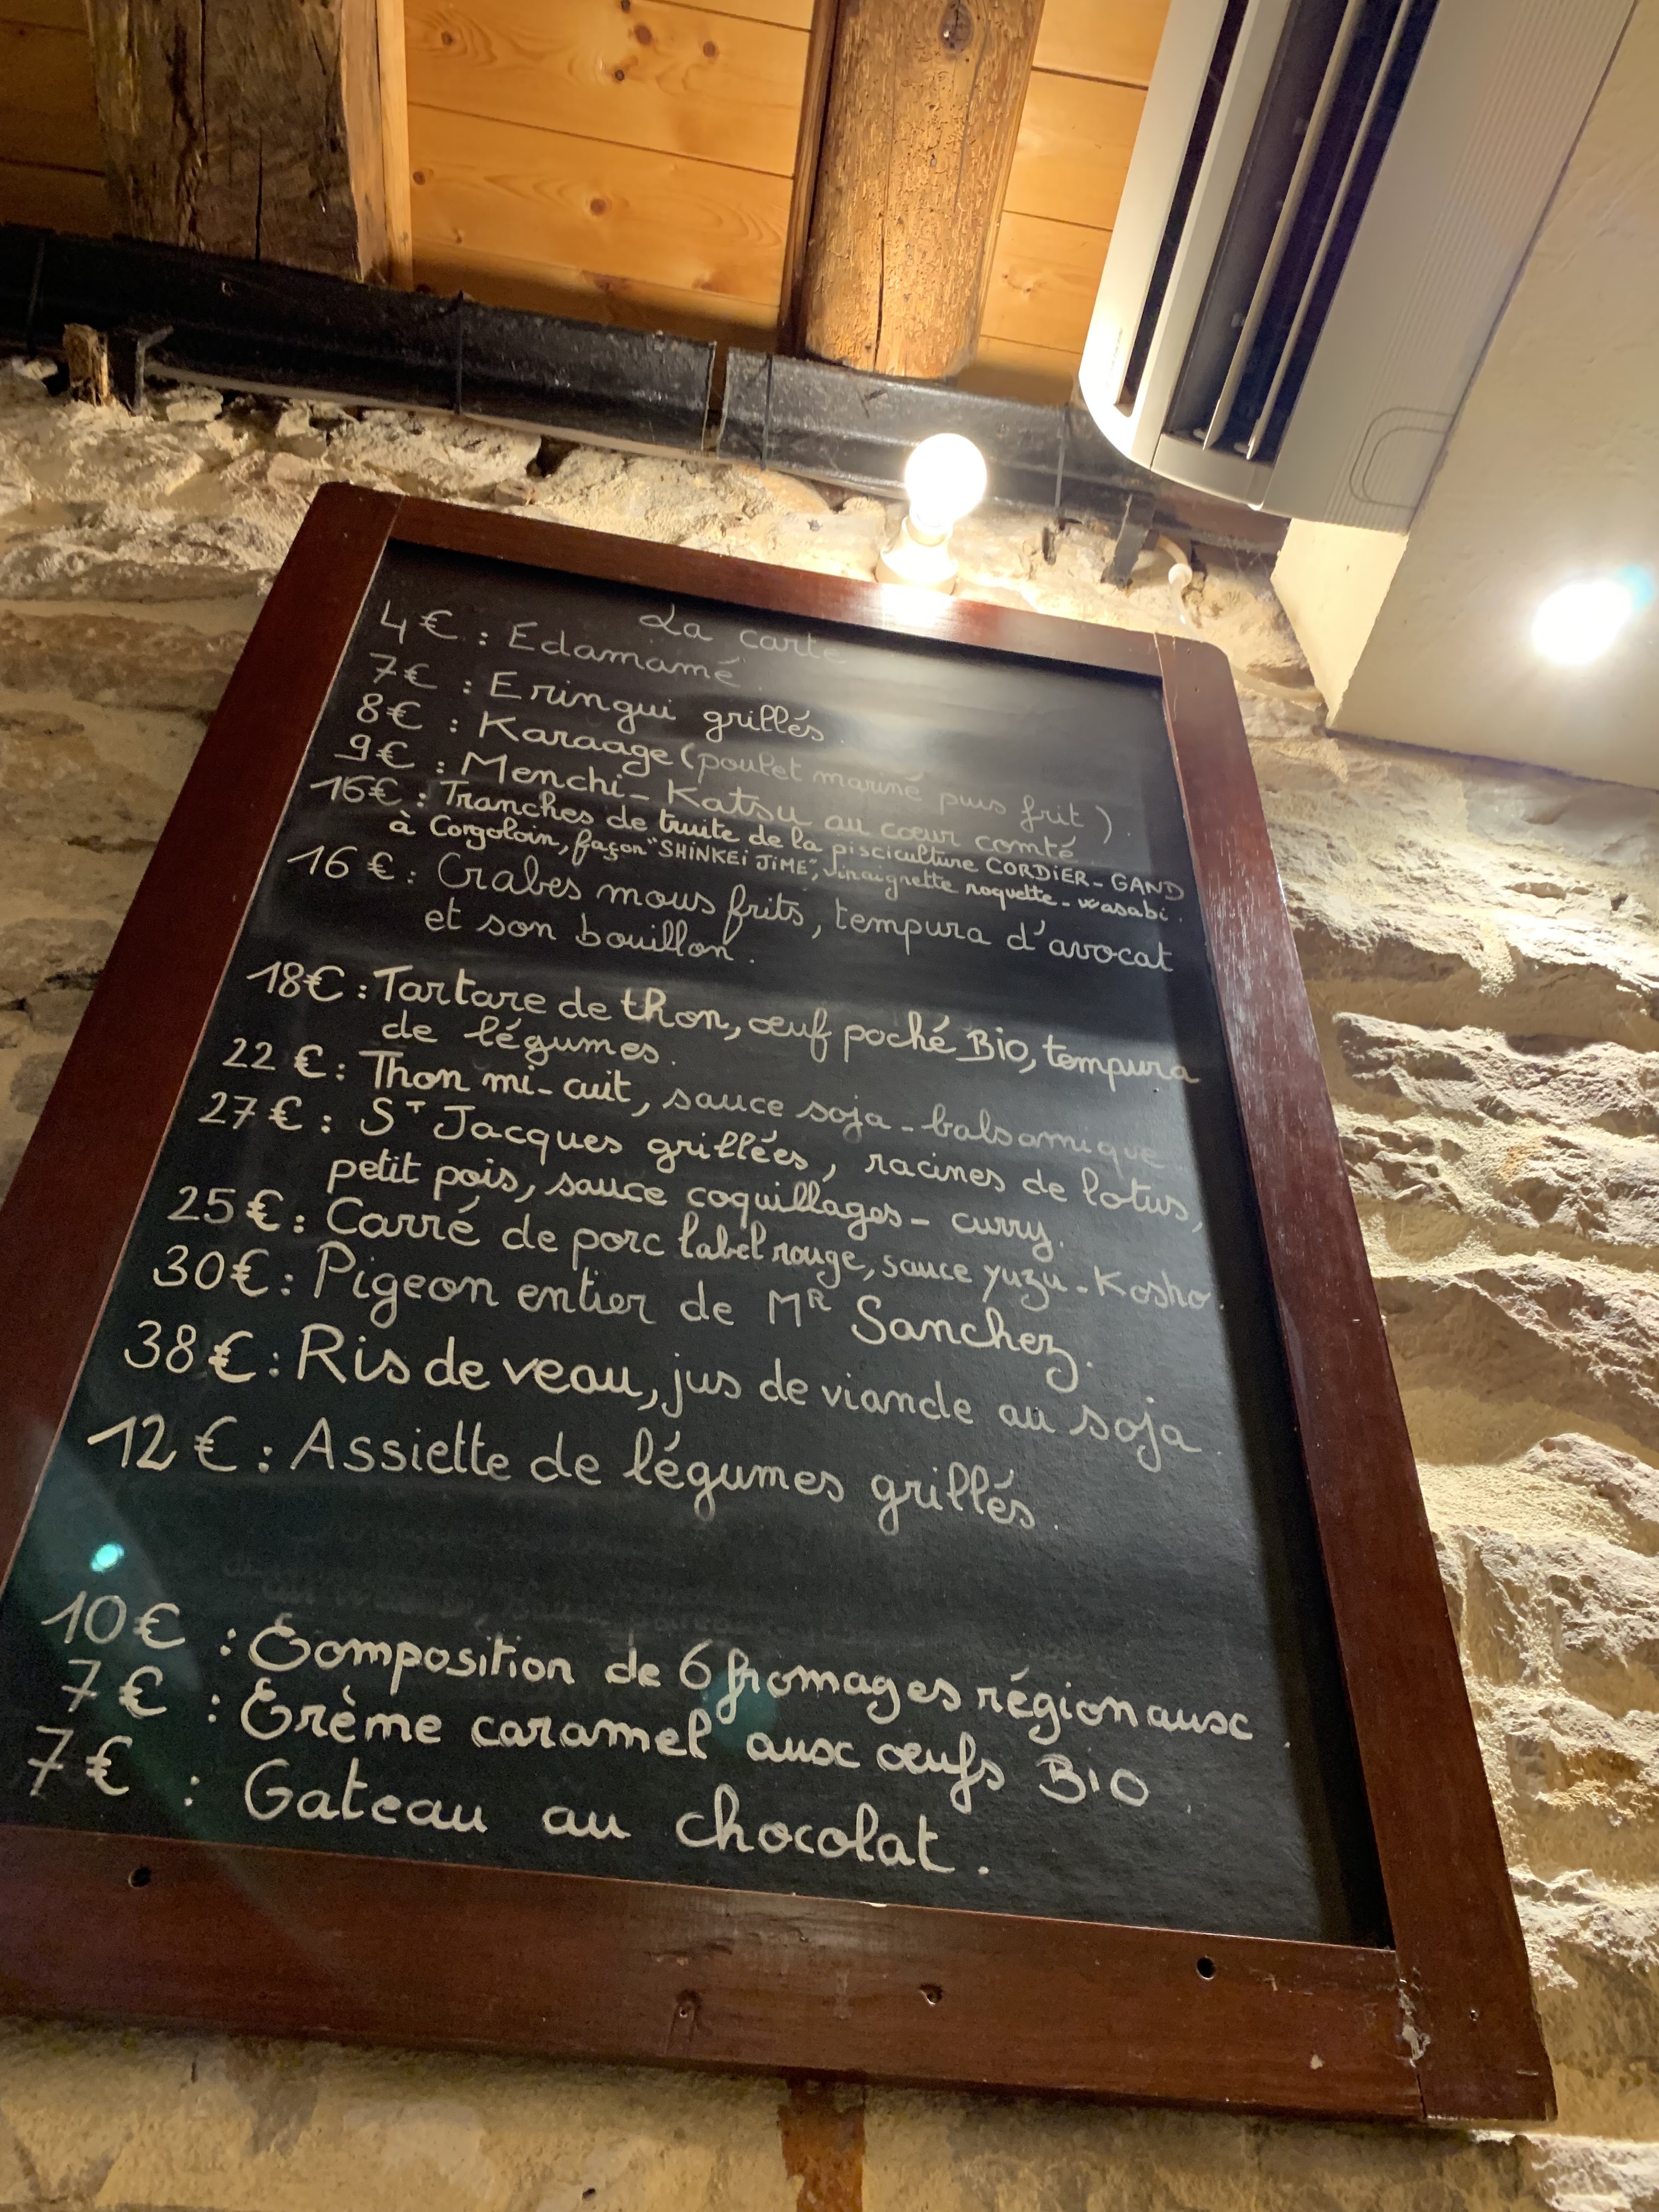 La carte
4€ : Edamamé.
7€ : Eringui grillés.
8€ : Karaage (poulet mariné puis frit).
9€ : Menchi-Katsu au cœur comté.
16€ : Tranches de truite de la pisciculture CORDIER-GAND
à Corgoloin, façon "SHINKEi JiME", vinaigrette roquette-wasabi.
16€ : Crabes mous frits, tempura d'avocat
et son bouillon.
18€ : Tartare de thon, œuf poché Bio, tempura
de légumes.
22€ : Thon mi-cuit, sauce soja-balsamique
27€ : ST Jacques grillées, racines de lotus,
petit pois, sauce coquillages-curry.
25€ : Carré de porc label rouge, sauce yuzu-Kosho.
30€ : Pigeon entier de MR Sanchez.
38€ : Ris de veau, jus de viande au soja.
12€ : Assiette de légumes grillés.
10€ : Composition de 6 fromages régionaux.
7€ : Crème caramel aux œufs BiO.
7€ : Gateau au chocolat.